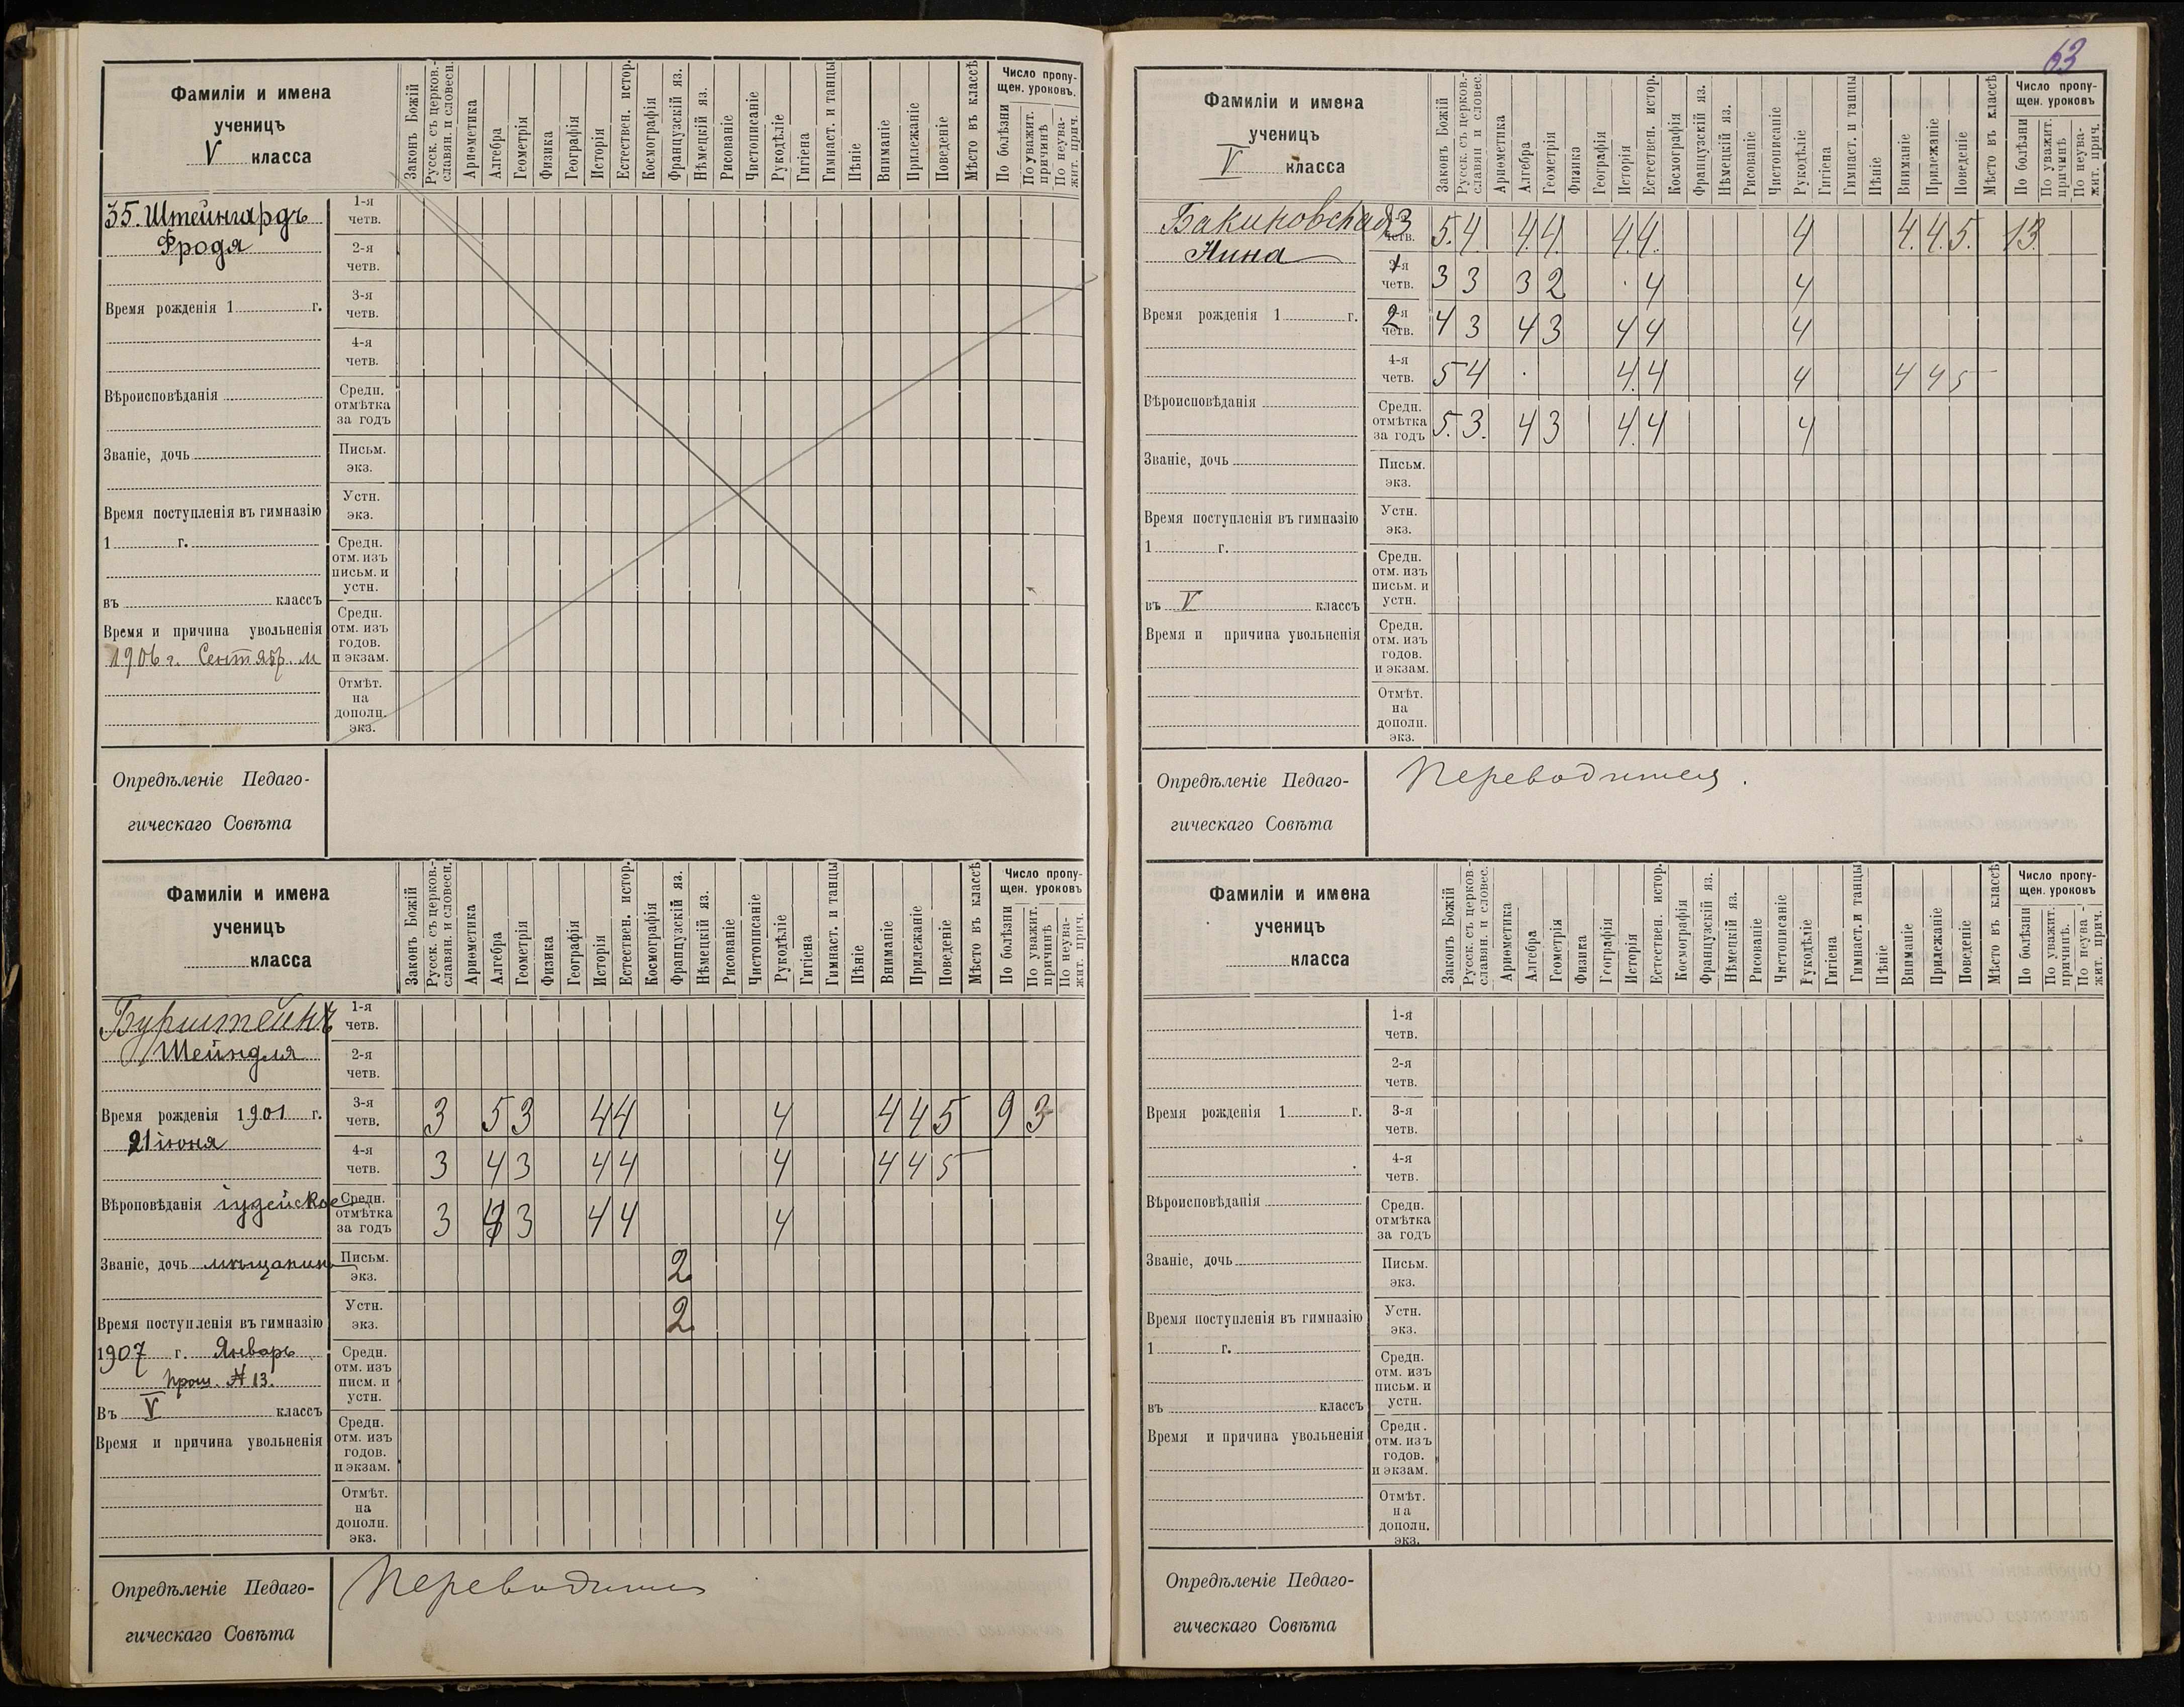 63
Фамиліи и имена
ученицъ
V класса
Законъ Божій
Русск. съ церков.-
славян. и словесн.
Ариѳметика
Алгебра
Геометрія
Физика
Географія
Исторія
Естествен. истор.
Космографія
Французскій яз.
Нѣмецкій яз.
Рисованіе
Чистописаніе
Рукодѣліе
Гигіена
Гимнаст. и танцы
Пѣніе
Вниманіе
Прилежаніе
Поведеніе
Мѣсто въ классѣ
Число пропу-
щен. уроковъ.
По болѣзни
По уважит.
причинѣ
По неува-
жит. прич.
35. Штейнгардъ
Фродя
Время рожденія 1 г.
Вѣроисповѣданія
Званіе, дочь
Время поступленія въ гимназію
1 г.
въ классъ
Время и причина увольненія
1906 г. Сентябр. м
1-я
четв.
2-я
четв.
3-я
четв.
4-я
четв.
Средн.
отмѣтка
за годъ
Письм.
экз.
Устн.
экз.
Средн.
отм. изъ
письм. и
устн.
Средн.
отм. изъ
годов.
и экзам.
Отмѣт.
на
дополн.
экз.
Опредѣленіе Педаго-
гическаго Совѣта
Фамиліи и имена
ученицъ
класса
Законъ Божій
Русск. съ церков.-
славян. и словесн.
Ариѳметика
Алгебра
Геометрія
Физика
Географія
Исторія
Естествен. истор.
Космографія
Французскій яз.
Нѣмецкій яз.
Рисованіе
Чистописаніе
Рукодѣліе
Гигіена
Гимнаст. и танцы
Пѣніе
Вниманіе
Прилежаніе
Поведеніе
Мѣсто въ классѣ
Число пропу-
щен. уроковъ
По болѣзни
По уважит.
причинѣ
По неува-
жит. прич.
Бурштейнъ
Шейндля
Время рожденія 1901 г.
21 іюня
Вѣроповѣданія іудейское
Званіе, дочь мѣщанина
Время поступленія въ гимназію
1907 г. Январь
прош. № 13.
Въ V классъ
Время и причина увольненія
1-я
четв.
2-я
четв.
3-я
четв. 3 5 3 4 4 4 4 4 5 9 3
4-я
четв. 3 4 3 4 4 4 4 4 5
Средн.
отмѣтка
за годъ 3 4 3 4 4 4
Письм.
экз. 2
Устн.
экз. 2
Средн.
отм. изъ
писм. и
устн.
Средн.
отм. изъ
годов.
и экзам.
Отмѣт.
на
дополн.
экз.
Опредѣленіе Педаго-
гическаго Совѣта
Переводится
Фамиліи и имена
ученицъ
V класса
Законъ Божій
Русск. съ церков.-
славян и словес.
Ариѳметика
Алгебра
Геометрія
Физика
Географія
Исторія
Естествен. истор.
Космографія
Французскій яз.
Нѣмецкій яз.
Рисованіе
Чистописаніе
Рукодѣліе
Гигіена
Гимнаст. и танцы
Пѣніе
Вниманіе
Прилежаніе
Поведеніе
Мѣсто въ классѣ
Число пропу-
щен. уроковъ
По болѣзни
По уважит.
причинѣ
По неува-
жит. прич.
Бакиновская
Нина
Время рожденія 1 г.
Вѣроисповѣданія
Званіе, дочь
Время поступленія въ гимназію
1 г.
въ V классъ
Время и причина увольненія
3
четв. 5. 4. 4. 4. 4. 4. 4 4. 4. 5. 13.
1-я
четв. 3 3 3 2 4 4
2-я
четв. 4 3 4 3 4 4 4
4-я
четв. 5 4 4. 4 4 4 4 5
Средн.
отмѣтка
за годъ 5. 3. 4 3 4. 4 4
Письм.
экз.
Устн.
экз.
Средн.
отм. изъ
письм. и
устн.
Средн.
отм. изъ
годов.
и экзам.
Отмѣт.
на
дополн.
экз.
Опредѣленіе Педаго-
гическаго Совѣта
Переводится.
Фамиліи и имена
ученицъ
класса
Законъ Божій
Русск. съ церков-
славян. и словес.
Ариѳметика
Алгебра
Геометрія
Физика
Географія
Исторія
Естествен. истор.
Космографія
Французскій яз.
Нѣмецкій яз.
Рисованіе
Чистописаніе
Рукодѣліе
Гигіена
Гимнаст. и танцы
Пѣніе
Вниманіе
Прилежаніе
Поведеніе
Мѣсто въ классѣ
Число пропу-
щен. уроковъ
По болѣзни
По уважит.
причинѣ.
По неува-
жит. прич.
Время рожденія 1 г.
Вѣроисповѣданія
Званіе, дочь
Время поступленія въ гимназію
1 г.
въ классъ
Время и причина увольненія
1-я
четв.
2-я
четв.
3-я
четв.
4-я
четв.
Средн.
отмѣтка
за годъ
Письм.
экз.
Устн.
экз.
Средн.
отм. изъ
письм. и
устн.
Средн.
отм. изъ
годов.
и экзам.
Отмѣт.
на
дополн.
экз.
Опредѣленіе Педаго-
гическаго Совѣта